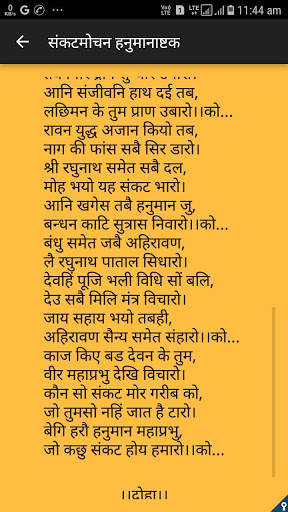 0
K/s
LTE
11:44 am
संकटमोचन हनुमानाष्टक
आनि संजीवनि हाथ दई तब,
लछिमन के तुम प्राण उबारो।।को...
रावन युद्ध अजान कियो तब,
नाग की फांस सबै सिर डारो।
श्री रघुनाथ समेत सबै दल,
मोह भयो यह संकट भारो।
आनि खगेस तबै हनुमान जु,
बन्धन काटि सुत्रास निवारो।।को...
बंधु समेत जबै अहिरावण,
लै रघुनाथ पाताल सिधारो।
देवहिं पूजि भली विधि सों बलि,
देउ सबै मिलि मंत्र विचारो।
जाय सहाय भयो तबही,
अहिरावण सैन्य समेत संहारो।।को...
काज किए बड देवन के तुम,
वीर महाप्रभु देखि विचारो।
कौन सो संकट मोर गरीब को,
जो तुमसो नहिं जात है टारो।
बेगि हरौ हनुमान महाप्रभु,
जो कछु संकट होय हमारो।।को...
।।दोहा।।